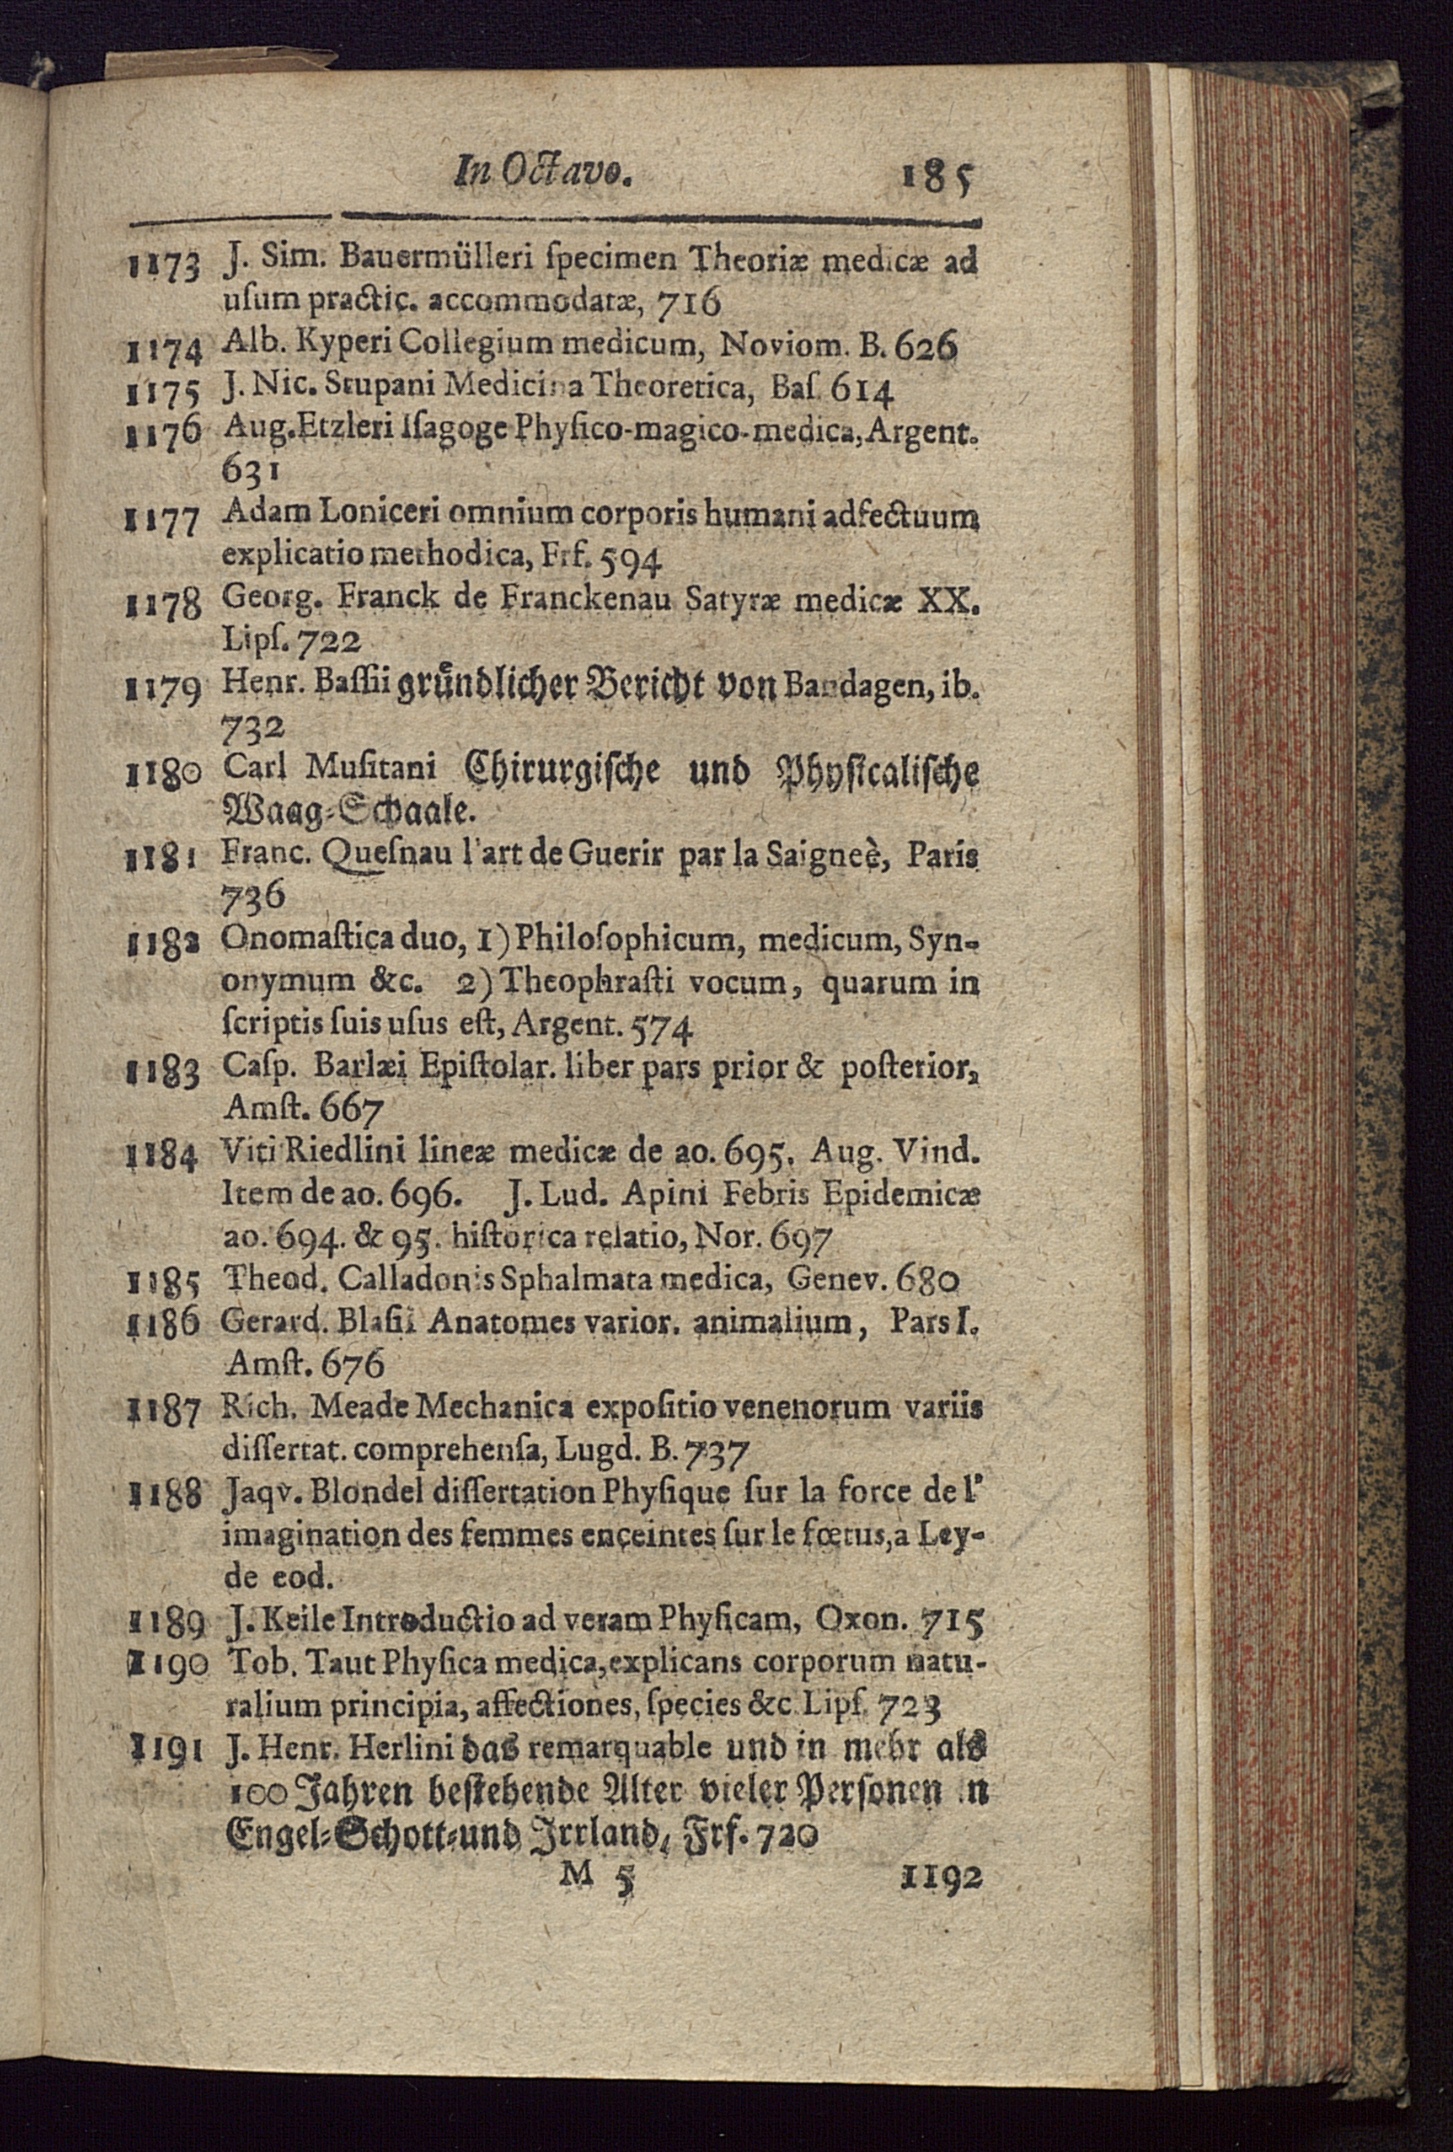 In Octavo. 185
1173 J. Sim. Bauermülleri ſpecimen Theoriæ medicæ ad
uſum practic. accommodatæ, 716
1174 Alb. Kyperi Collegium medicum, Noviom. B. 626
1175 J. Nic. Stupani Medicina Theoretica, Baſ. 614
1176 Aug. Etzleri Iſagoge Phyſico-magico-medica, Argent.
631
1177 Adam Loniceri omnium corporis humani adfectuum
explicatio methodica, Frf. 594
1178 Georg. Franck de Franckenau Satyræ medicæ XX.
Lipſ. 722
1179 Henr. Baſſii gruͤndlicher Bericht von Bandagen, ib.
732
1180 Carl Muſitani Chirurgiſche und Phyſicaliſche
Waag-Schaale.
1181 Franc. Queſnau l'art de Guerir par la Saigneè, Paris
736
1182 Onomaſtica duo, 1) Philoſophicum, medicum, Syn-
onymum &c. 2) Theophraſti vocum, quarum in
ſcriptis ſuis uſus eſt, Argent. 574
1183 Caſp. Barlæi Epiſtolar. liber pars prior & poſterior,
Amſt. 667
1184 Viti Riedlini lineæ medicæ de ao. 695. Aug. Vind.
Item de ao. 696. J. Lud. Apini Febris Epidemicæ
ao. 694. & 95. hiſtorica relatio, Nor. 697
1185 Theod. Calladonis Sphalmata medica, Genev. 680
1186 Gerard. Blaſii Anatomes varior. animalium, Pars I.
Amſt. 676
1187 Rich. Meade Mechanica expoſitio venenorum variis
diſſertat. comprehenſa, Lugd. B. 737
1188 Jaqv. Blondel diſſertation Phyſique ſur la force de l'
imagination des femmes enceintes ſur le fœtus, a Ley-
de eod.
1189 J. Keile Introductio ad veram Phyſicam, Oxon. 715
1190 Tob. Taut Phyſica medica, explicans corporum natu-
ralium principia, affectiones, ſpecies &c. Lipſ. 723
1191 J. Henr. Herlini das remarquable und in mehr als
100 Jahren beſtehende Alter vieler Perſonen in
Engel-Schott-und Irrland, Frf. 720
M 5 1192